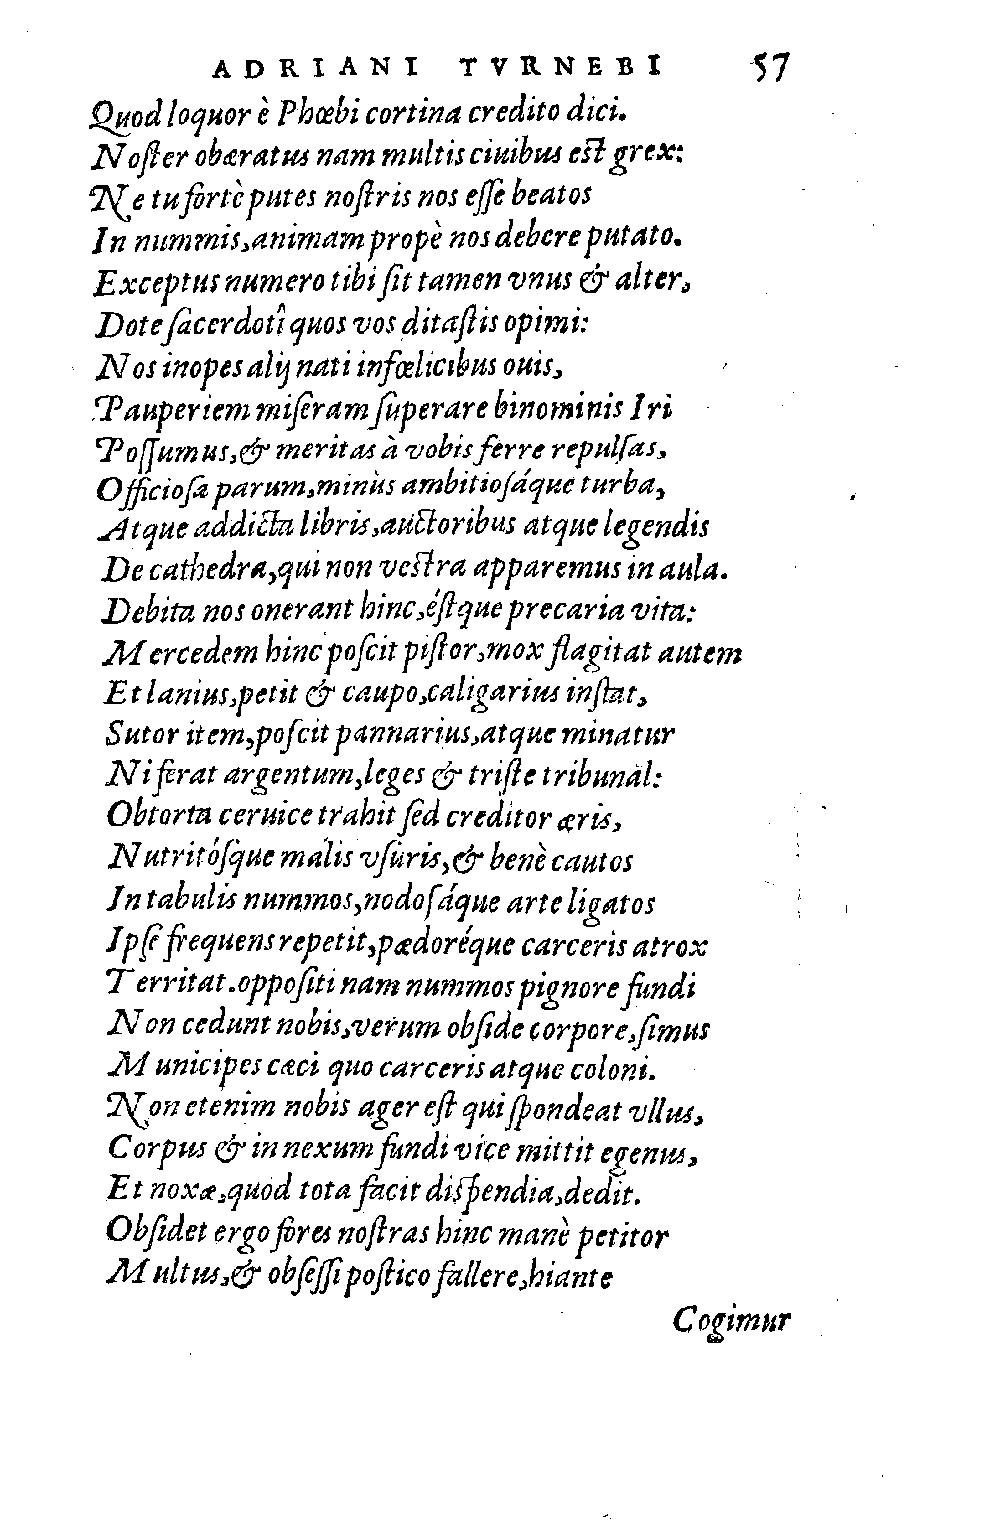 ADRIANI TVRNEBI 57
Quod loquor è Phœbi cortina credito dici.
Noſter obæratus nam multis ciuibus eſt grex:
Ne tu fortè putes noſtris nos eſſe beatos
In nummis, animam propè nos debere putato.
Exceptus numero tibi ſit tamen vnus & alter,
Dote ſacerdotî quos vos ditaſtis opimi:
Nos inopes alij nati infœlicibus ouis,
Pauperiem miſeram ſuperare binominis Iri
Poſſumus, & meritas à vobis ferre repulſas,
Officioſa parum, minùs ambitioſáque turba,
Atque addicta libris, auctoribus atque legendis
De cathedra, qui non veſtra apparemus in aula.
Debita nos onerant hinc, éſtque precaria vita:
Mercedem hinc poſcit piſtor, mox flagitat autem
Et lanius, petit & caupo, caligarius inſtat,
Sutor item, poſcit pannarius, atque minatur
Ni ferat argentum, leges & triſte tribunal:
Obtorta ceruice trahit ſed creditor æris,
Nutritóſque malis vſuris, & benè cautos
In tabulis nummos, nodoſáque arte ligatos
Ipſe frequens repetit, pædoréque carceris atrox
Territat. oppoſiti nam nummos pignore fundi
Non cedunt nobis, verum obſide corpore, ſimus
Municipes cæci quo carceris atque coloni.
Non etenim nobis ager eſt qui ſpondeat vllus,
Corpus & in nexum fundi vice mittit egenus,
Et noxæ, quod tota facit diſpendia, dedit.
Obſidet ergo fores noſtras hinc manè petitor
Multus, & obſeſſi poſtico fallere, hiante
Cogimur